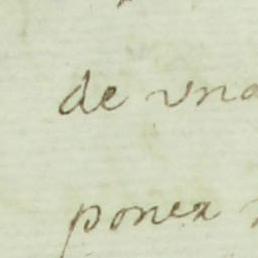 de vna
poner